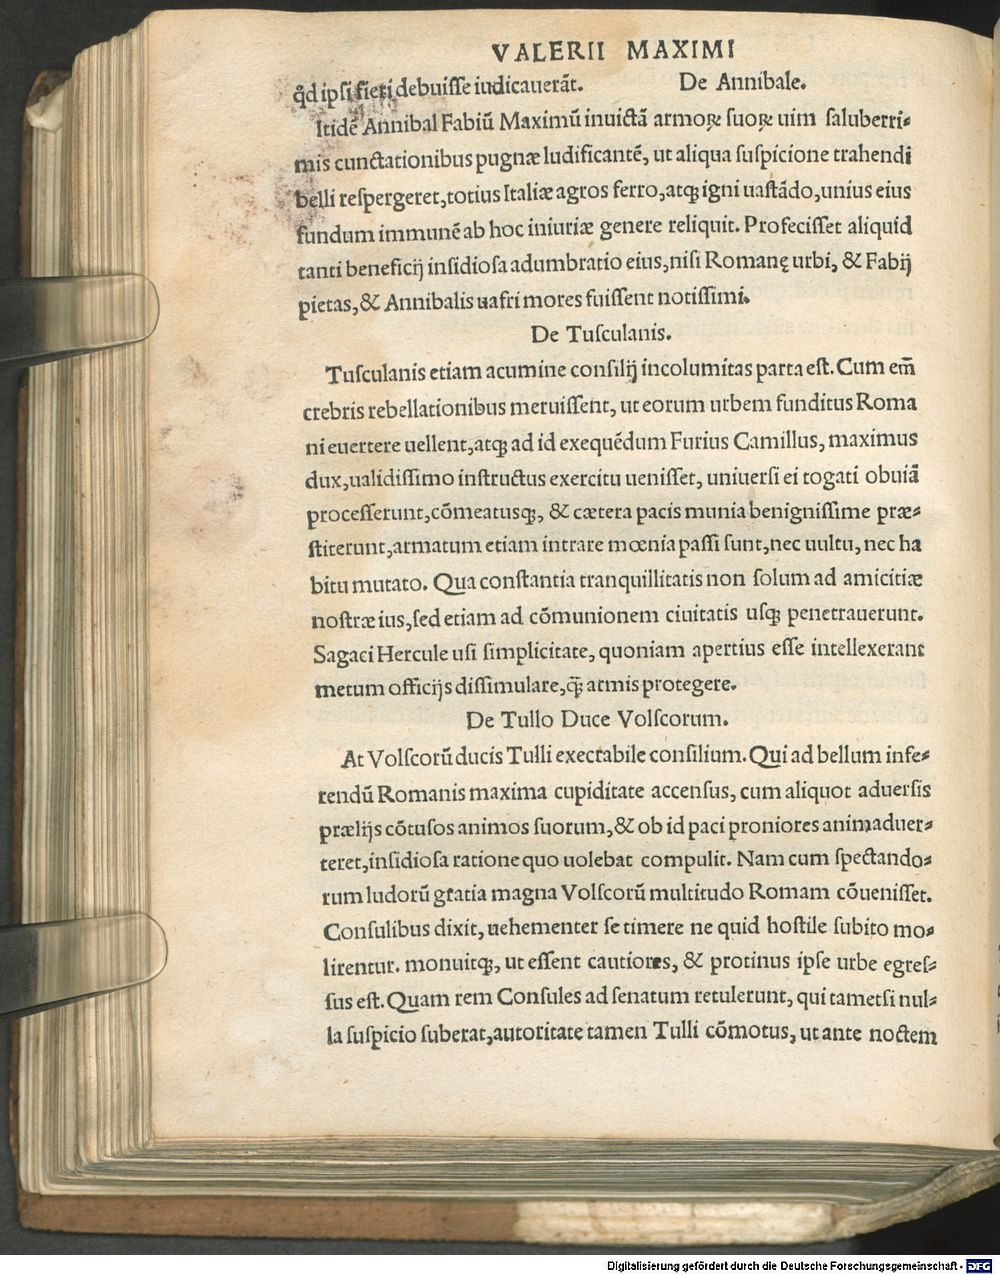 VALERII MAXIMI
qd́ ipsi fieri debuiſſe iudicauerãt. De Annibale.
Itidẽ Annibal Fabiũ Maximũ inuictã armoꝝ ſuoꝝ uim ſaluberri-
mis cunctationibus pugnæ ludificantẽ, ut aliqua ſuſpicione trahendi
belli reſpergeret, totius Italiæ agros ferro, atqꝫ igni uaſtãdo, unius eius
fundum immunẽ ab hoc iniuriæ genere reliquit. Profeciſſet aliquid
tanti beneficij inſidioſa adumbratio eius, niſi Romanę urbi, & Fabij
pietas, & Annibalis uafri mores fuiſſent notiſſimi.
De Tuſculanis.
Tuſculanis etiam acumine conſilij incolumitas parta eſt. Cum em̃
crebris rebellationibus meruiſſent, ut eorum urbem funditus Roma
ni euertere uellent, atqꝫ ad id exequẽdum Furius Camillus, maximus
dux, ualidiſſimo inſtructus exercitu ueniſſet, uniuerſi ei togati obuiã
proceſſerunt, cõmeatusqꝫ, & cætera pacis munia benigniſſime præ-
ſtiterunt, armatum etiam intrare mœnia paſſi ſunt, nec uultu, nec ha
bitu mutato. Qua conſtantia tranquillitatis non ſolum ad amicitiæ
noſtræ ius, ſed etiam ad cõmunionem ciuitatis uſqꝫ penetrauerunt.
Sagaci Hercule uſi ſimplicitate, quoniam apertius eſſe intellexerant
metum officijs diſſimulare, q̃ꝫ armis protegere.
De Tullo Duce Volſcorum.
At Volſcorũ ducis Tulli execrabile conſilium. Qui ad bellum infe-
rendũ Romanis maxima cupiditate accenſus, cum aliquot aduerſis
prælijs cõtuſos animos ſuorum, & ob id paci proniores animaduer-
teret, inſidioſa ratione quo uolebat compulit. Nam cum ſpectando-
rum ludorũ gratia magna Volſcorũ multitudo Romam cõueniſſet.
Conſulibus dixit, uehementer ſe timere ne quid hoſtile ſubito mo-
lirentur. monuitqꝫ, ut eſſent cautiores, & protinus ipſe urbe egreſ-
ſus eſt. Quam rem Conſules ad ſenatum retulerunt, qui tametſi nul-
la ſuſpicio ſuberat, autoritate tamen Tulli cõmotus, ut ante noctem
Digitalisierung gefördert durch die Deutsche Forschungsgemeinschaft - DFG